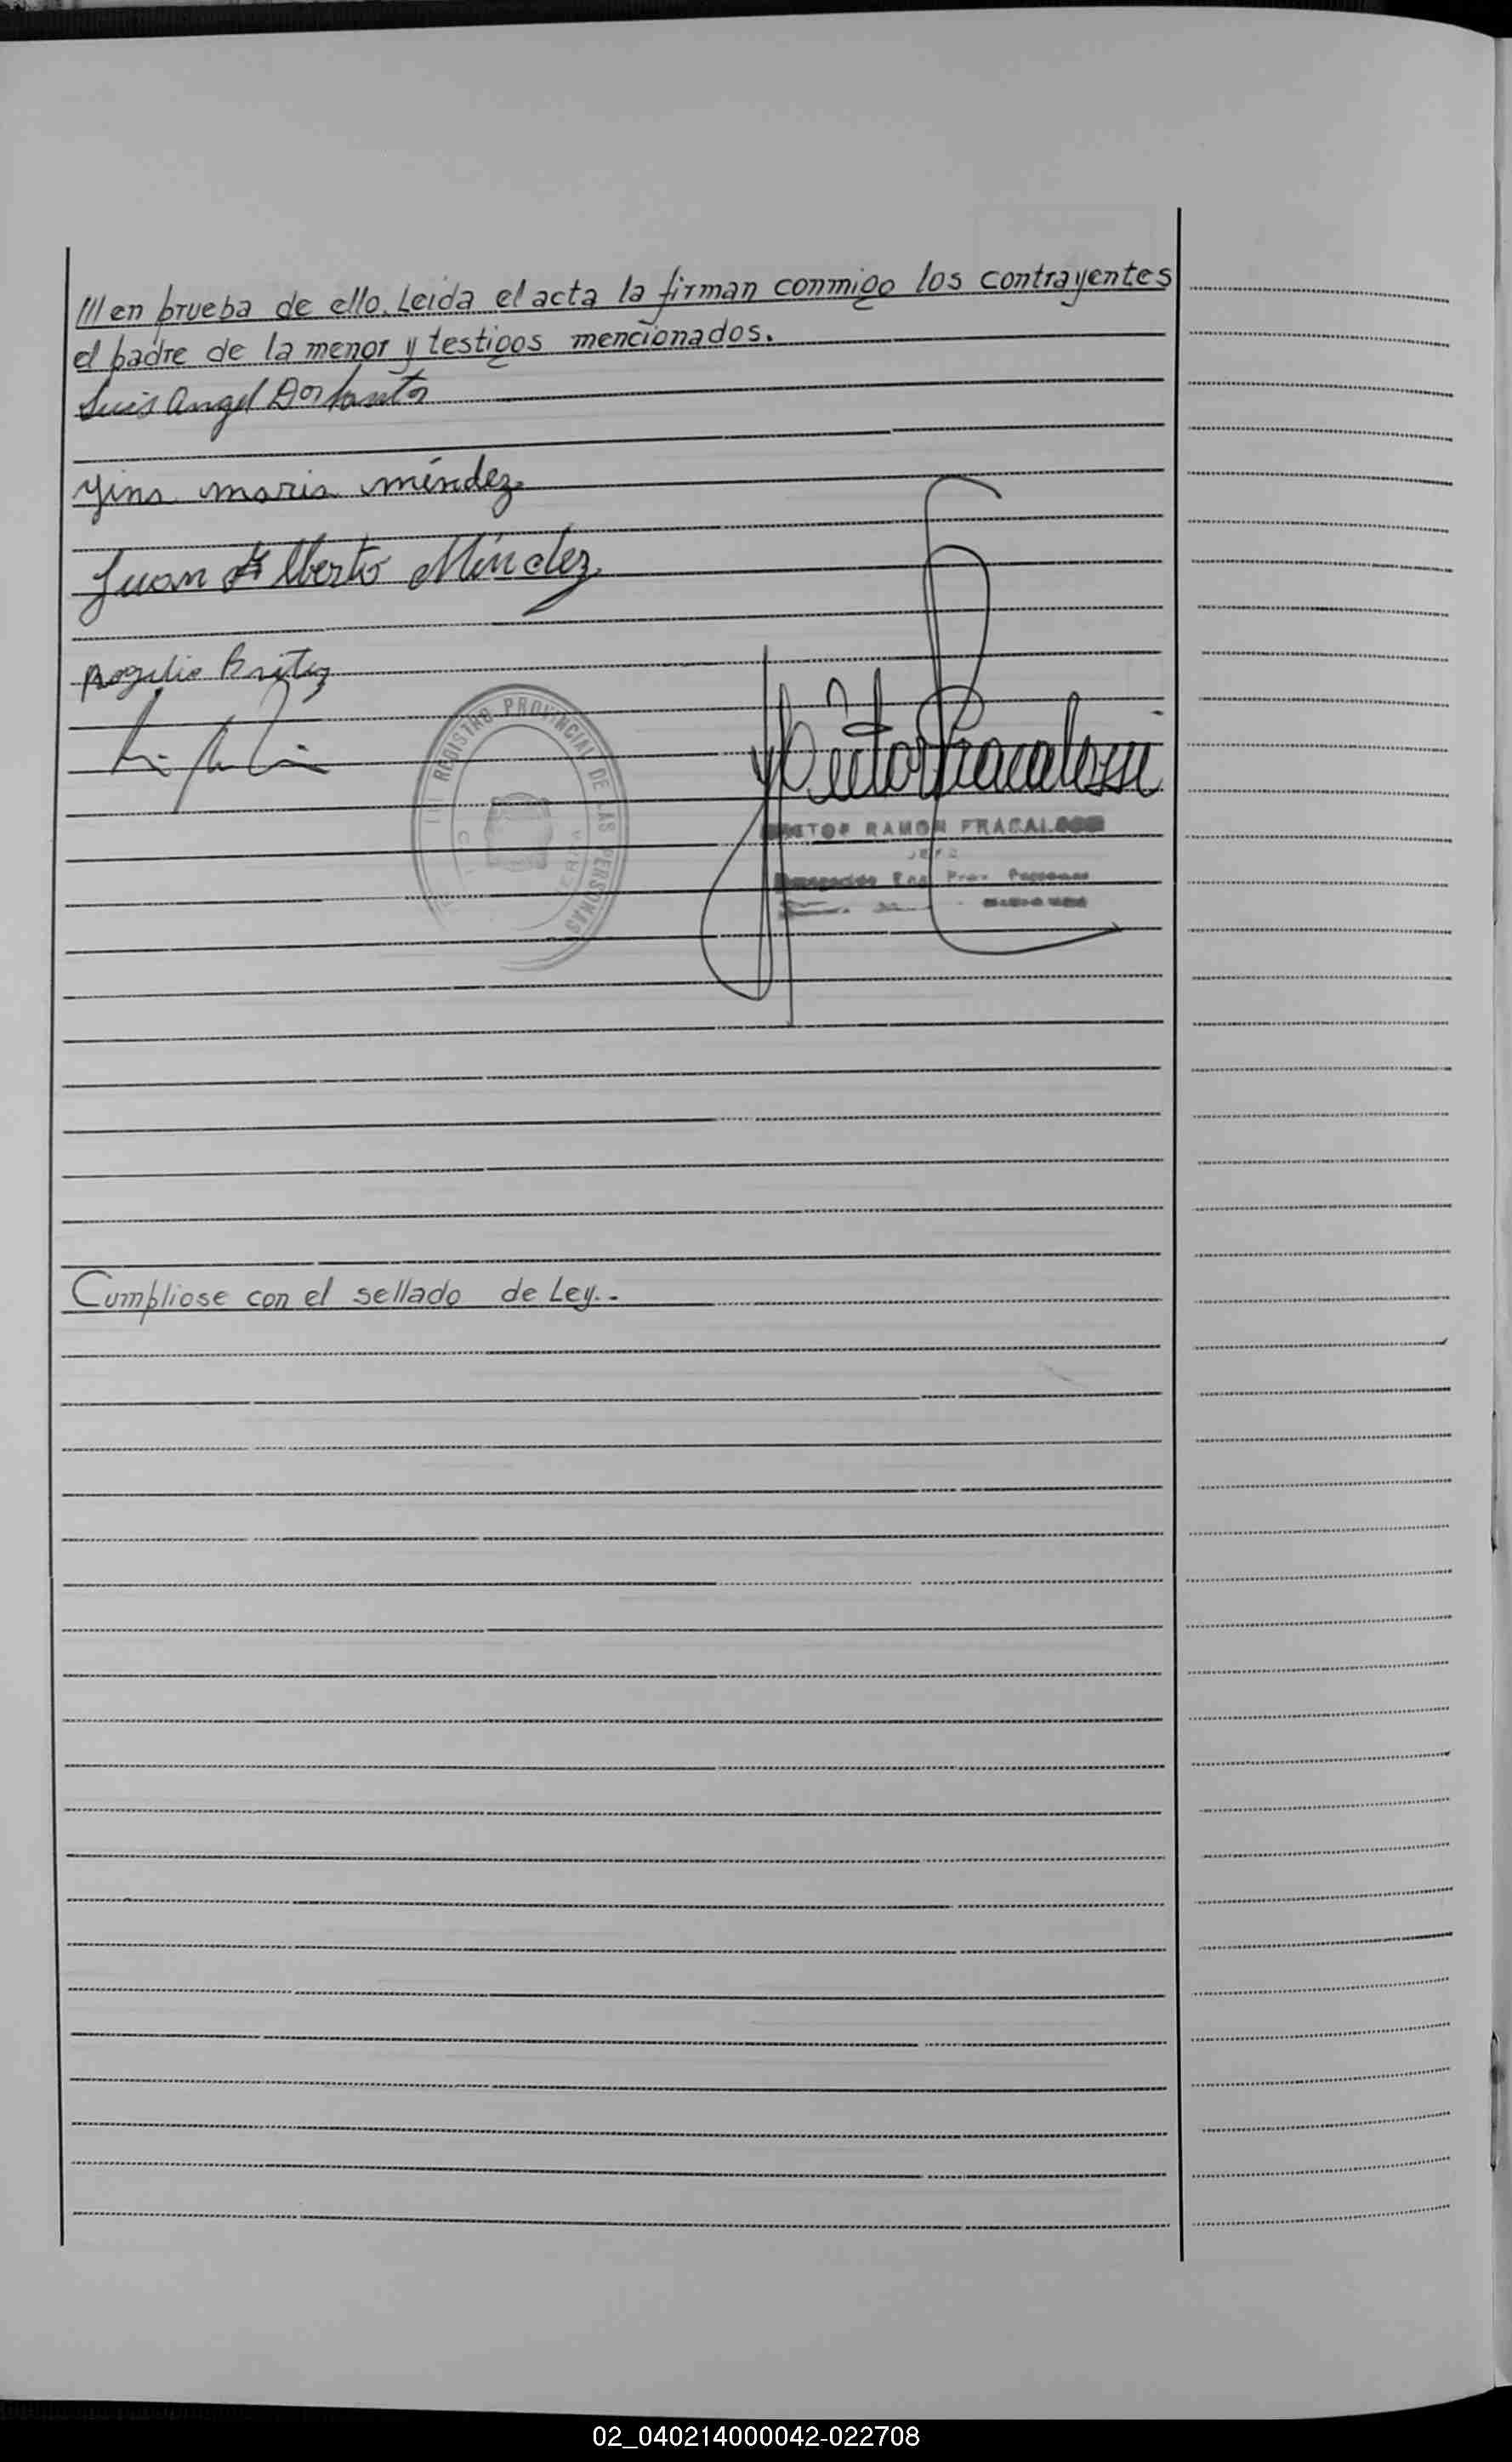 /// en prueba de ello. Leida el acta la firman conmigo los contrayentes
el padre de la menor y testigos mencionados.
Luis Angel Dos Santos
Yina maria méndez
Juan Alberto Méndez
Rogelio Britez
REGISTRO PROVINCIAL DE LAS PERSONAS
RAMON FRACALOSSI
JEFE
Cumpliose con el sellado de Ley.-
02_040214000042-022708